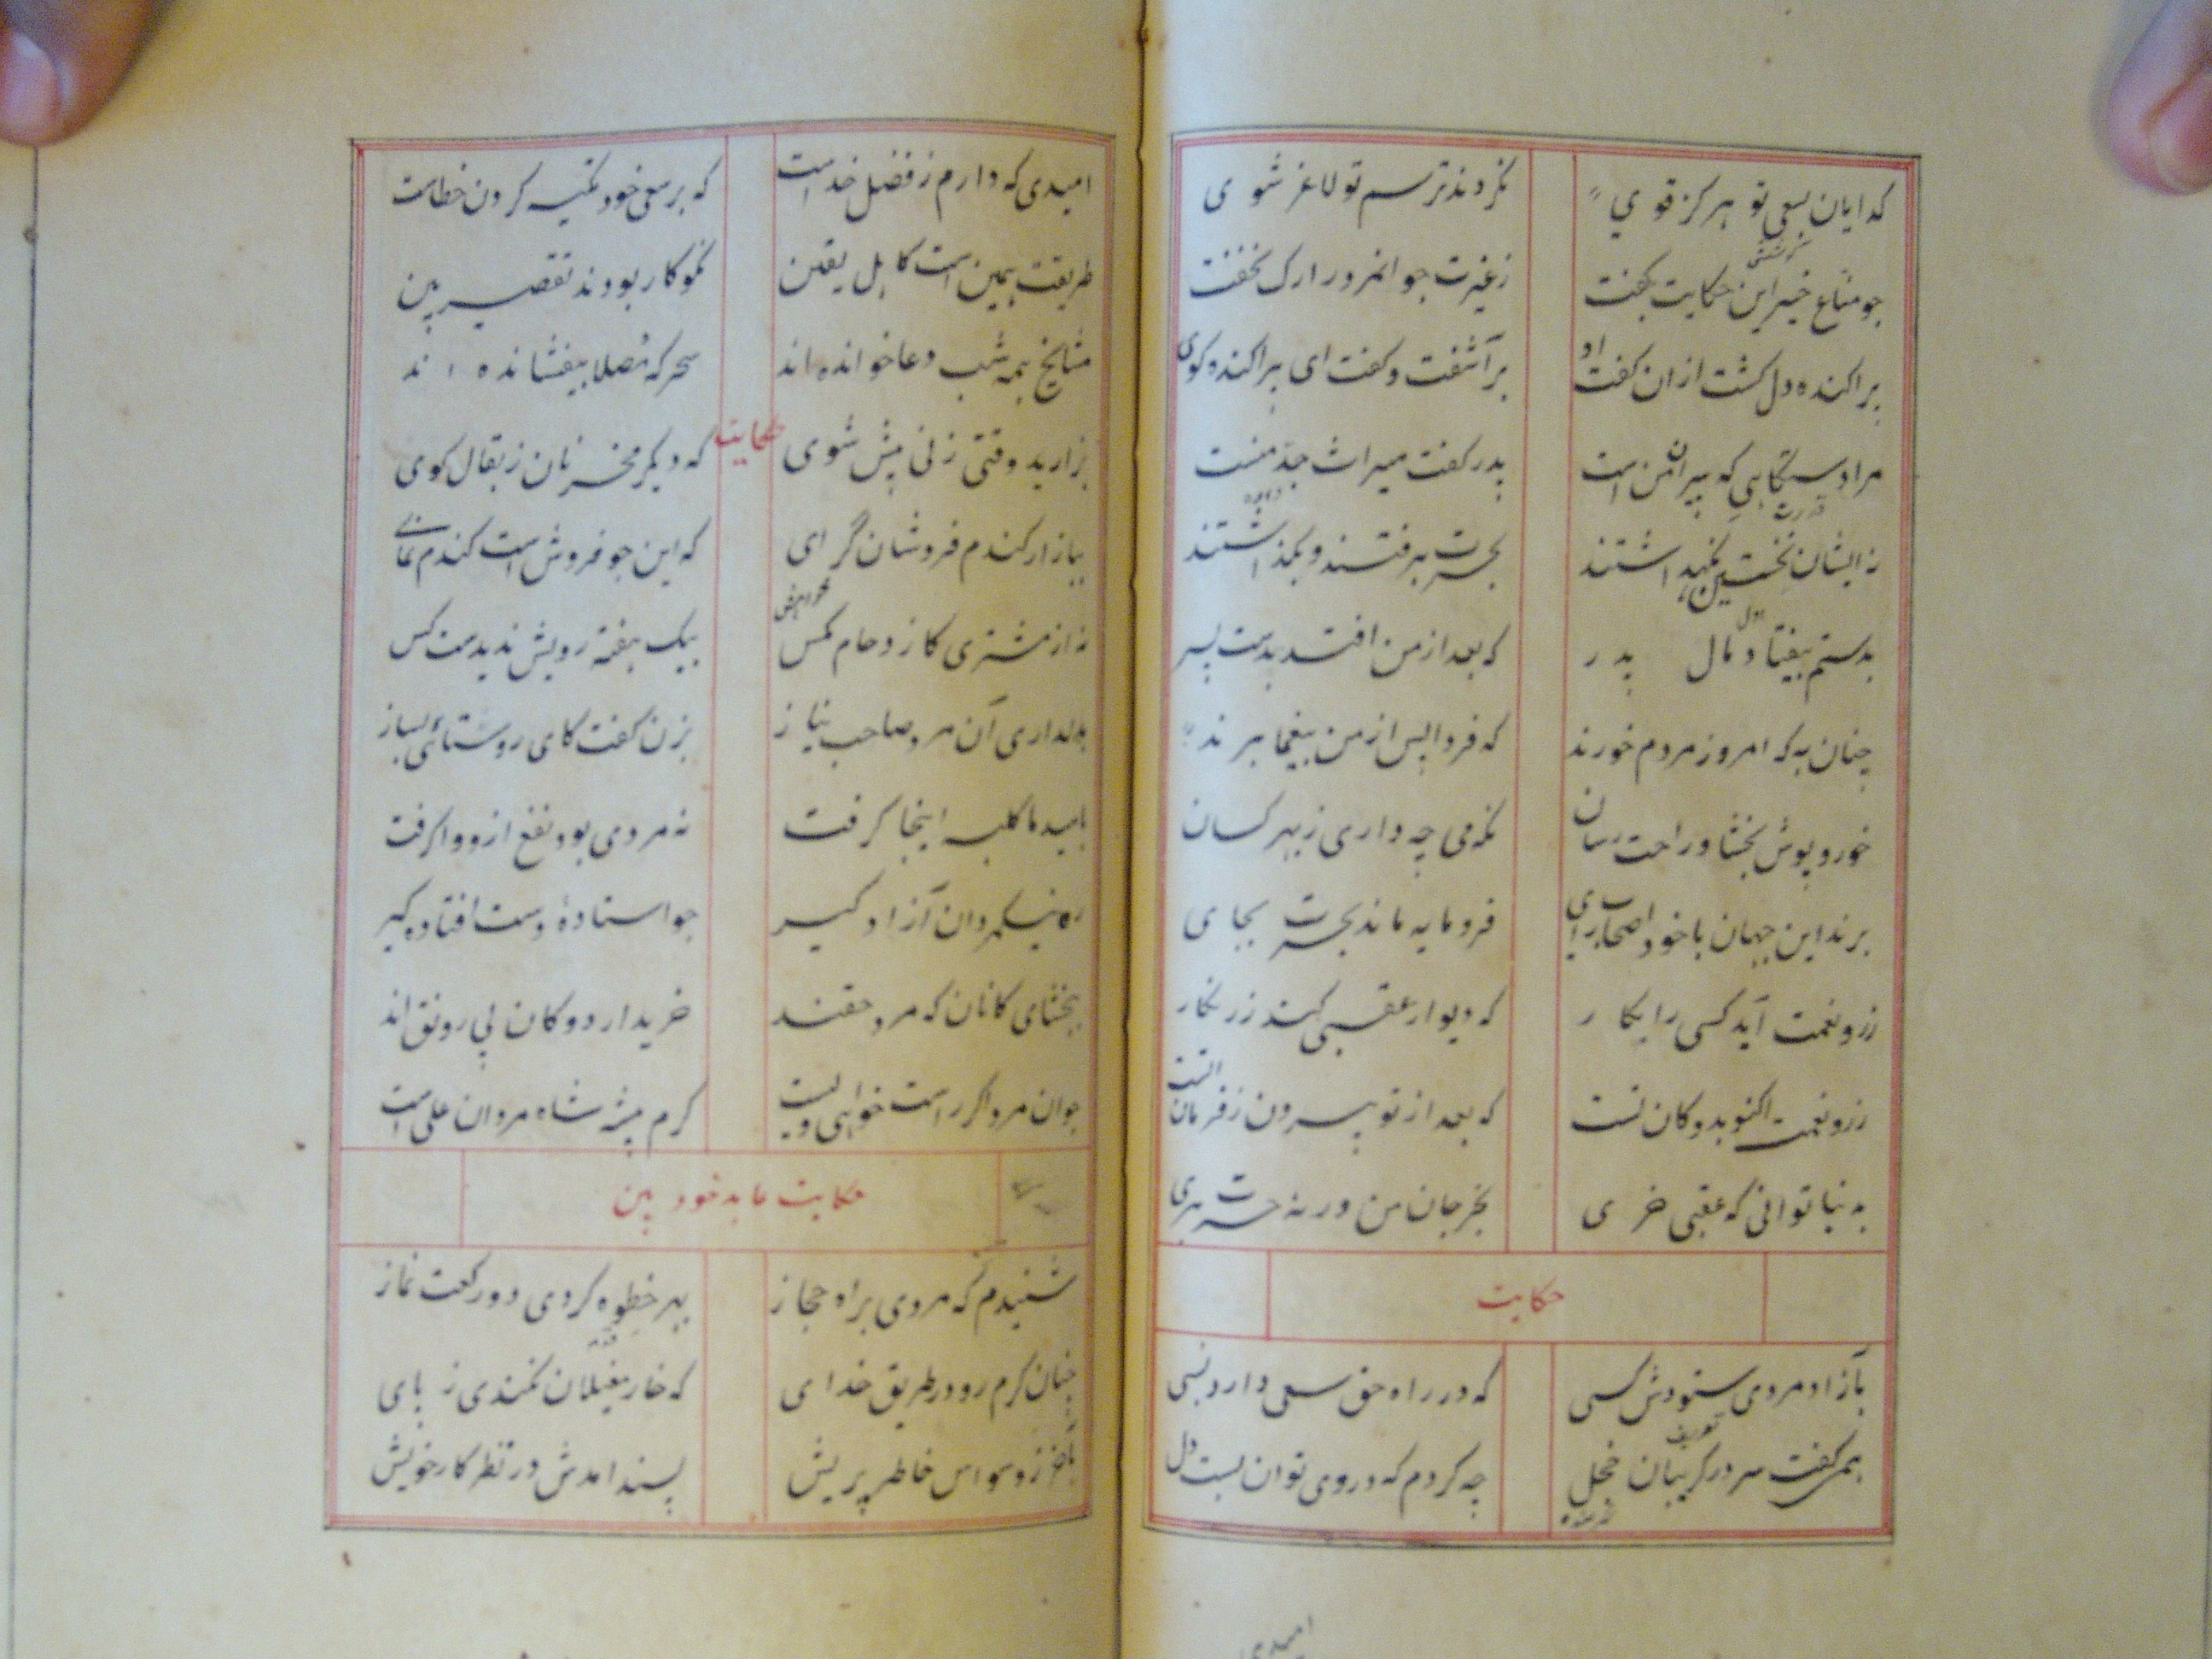 کدایان بسعی تو هرکز قوی
نکردند ترسم تو لاغر شوی
چو مناع خیر این حکایت بکفت
ز غیرت جوانمرد را رک نخفت
براکنده دل کشت ازان کفت او
برآشفت و کفت ای پراکنده کوی
مرا دستکاهی که پیرامن است
پدر کفت میراث جد منست
نه ایشان نخستین نکهداشتند
بحسرت برفتند و بکذاشتند
بدستم بیفتاد مال پدر
که بعد از من افتد بدست پسر
چنان به که امروز مردم خورند
که فردا پس از من بیغما برند
خور و پوش بخشا و راحت رسان
نکه می چه داری ز بهر کسان
برند این جهان با خود اصحاب رای
فرومایه ماند بحسرت بجای
زر و نعمت آید کسی را بکار
که دیوار عقبی کند زرنکار
زر و نعمت اکنو بده کان تست
که بعد از تو بیرون ز فرمان تست
بدنیا توانی که عقبی خری
بخر جان من ورنه حسرت بری
حکایت
بآزادمردی ستودش کسی
که در راه حق سعی دارد بسی
همی کفت سر در کریبان خجل
چه کردم که در وی توان بست دل
امیدی
امیدی که دارم ز فضل خداست
که بر سعی خود تکیه کردن خطاست
طریقت همین است کاهل یقین
نکوکار بودند تقصیر بین
مشایخ همه شب دعا خوانده اند
سحرکه مصلا بیفشانده اند
حکایت
بزارید وقتی زنی پیش شوی
که دیکر مخر نان ز بقال کوی
ببازار کندم فروشان گرای
که این جو فروش است کندم نمای
نه از مشتری کازدحام مکس
بیک هفته رویش ندیدست کس
بدلداری آن مرد صاحب نیاز
بزن کفت کای روستائی بساز
بامید ما کلبه اینجا کرفت
نه مردی بود نفع ازو وا کرفت
ره نیکمردان آزاد کیر
چو استادهٔ دست افتاده کیر
ببخشای کانان که مرد حقند
خریدار دوکان بی رونق اند
جوان مرد اکر راست خواهی ولیست
کرم پیشه شاه مردان علی است
حکایت عابد خود بین
شنیدم که مردی براه حجاز
بهر خطوه کردی دو رکعت نماز
چنان کرم رو در طریق خدای
که خار مغیلان نکندی ز پای
بآخر ز وسواس خاطر پریش
پسند امدش در نظر کار خویش